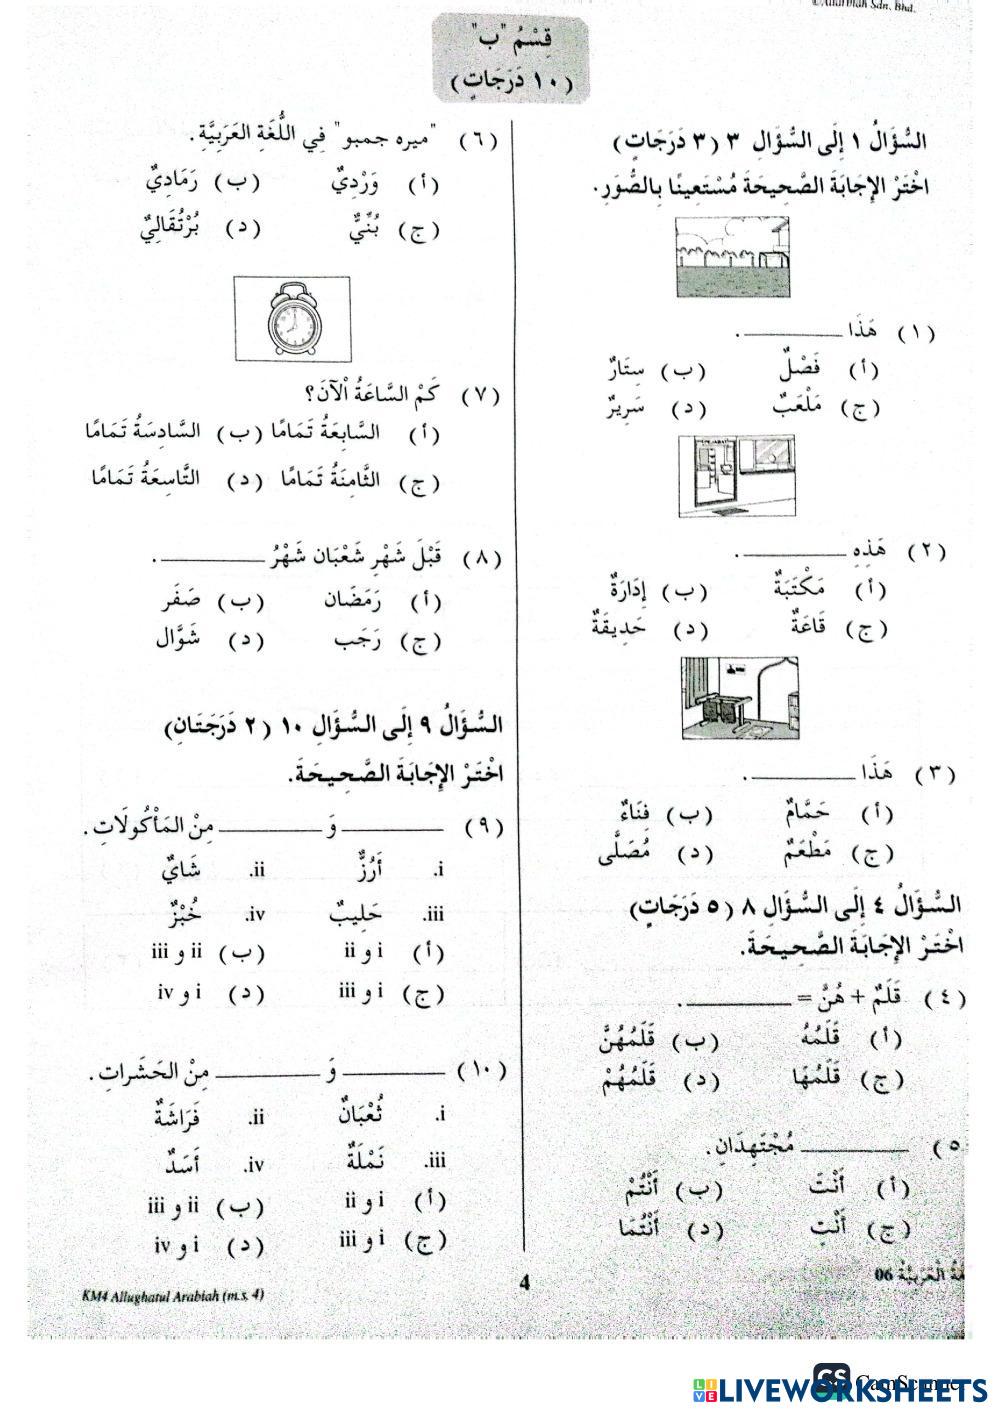 ©Allarmiah Sdn. Bhd.
قِسْمُ "ب"
(١٠ دَرَجَاتٍ)
السُّؤَالُ ١ إِلَى السُّؤَالِ ٣ (٣ دَرَجَاتٍ)
اخْتَرْ الإِجَابَةَ الصَّحِيحَةَ مُسْتَعِينًا بِالصُّوَرِ.
(١) هَذَا ________ .
(أ) فَصْلٌ (ب) سِتَارٌ
(ج) مَلْعَبٌ (د) سَرِيرٌ
(٢) هَذِهِ ________ .
(أ) مَكْتَبَةٌ (ب) إِدَارَةٌ
(ج) قَاعَةٌ (د) حَدِيقَةٌ
(٣) هَذَا ________ .
(أ) حَمَّامٌ (ب) فِنَاءٌ
(ج) مَطْعَمٌ (د) مُصَلًّى
السُّؤَالُ ٤ إِلَى السُّؤَالِ ٨ (٥ دَرَجَاتٍ)
اخْتَرْ الإِجَابَةَ الصَّحِيحَةَ.
(٤) قَلَمٌ + هُنَّ = ________ .
(أ) قَلَمُهُ (ب) قَلَمُهُنَّ
(ج) قَلَمُهَا (د) قَلَمُهُمْ
٥) ________ مُجْتَهِدَانِ.
(أ) أَنْتَ (ب) أَنْتُمْ
(ج) أَنْتِ (د) أَنْتُمَا
(٦) "ميره جمبو" فِي اللُّغَةِ العَرَبِيَّةِ .
(أ) وَرْدِيٌّ (ب) رَمَادِيٌّ
(ج) بُنِّيٌّ (د) بُرْتُقَالِيٌّ
(٧) كَمْ السَّاعَةُ اْلآنَ؟
(أ) السَّابِعَةُ تَمَامًا (ب) السَّادِسَةُ تَمَامًا
(ج) الثَّامِنَةُ تَمَامًا (د) التَّاسِعَةُ تَمَامًا
(٨) قَبْلَ شَهْرِ شَعْبَان شَهْرُ ________ .
(أ) رَمَضَان (ب) صَفَر
(ج) رَجَب (د) شَوَّال
السُّؤَالُ ٩ إِلَى السُّؤَالِ ١٠ (٢ دَرَجَتَانِ)
اخْتَرْ الإِجَابَةَ الصَّحِيحَةَ.
(٩) ________ وَ ________ مِنْ المَأْكُولَاتِ .
i. أَرُزٌّ ii. شَايٌ
iii. حَلِيبٌ iv. خُبْزٌ
(أ) i و ii (ب) ii و iii
(ج) i و iii (د) i و iv
(١٠) ________ وَ ________ مِنْ الحَشَراتِ .
i. ثُعْبَانٌ ii. فَرَاشَةٌ
iii. نَمْلَةٌ iv. أَسَدٌ
(أ) i و ii (ب) ii و iii
(ج) i و iii (د) i و iv
العَرَبِيَّة 06
4
KM4 Allughatul Arabiah (m.s. 4)
CS
LIVEWORKSHEETS